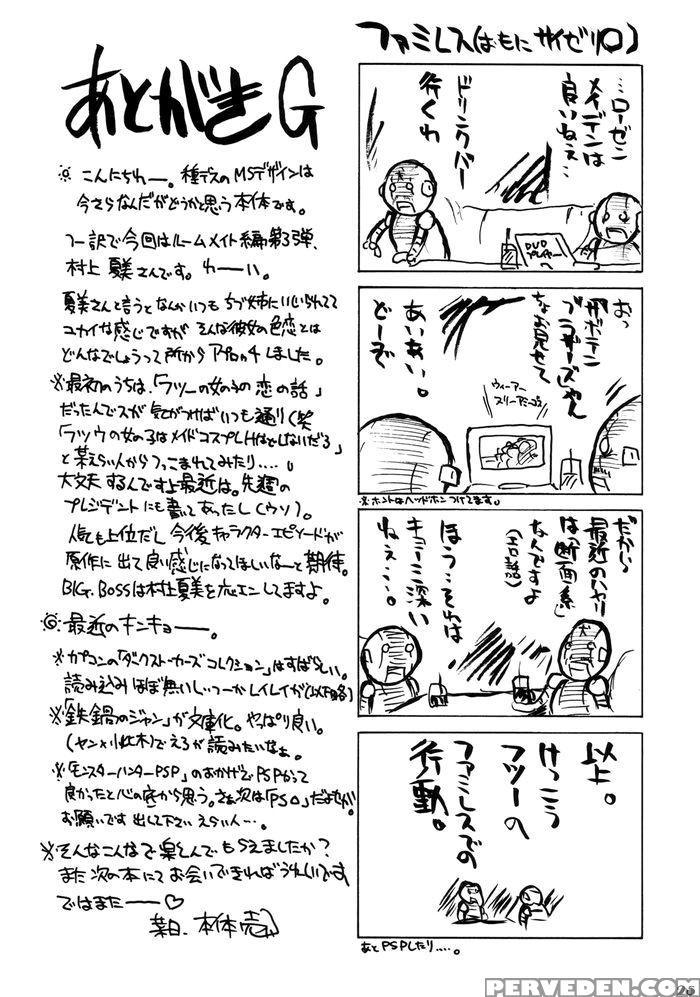 あとがきG
※こんにちわー。種デスのMSデザインは
今さらなんだがどうか思う本体です。
つー訳で今回はルームメイト編第3弾、
村上夏美さんです。わーい。
夏美さんと言うとなんかいつもちづ姉にいじられてて
ユカイな感じですが そんな彼女の色恋とは
どんなでしょうって所からアプローチしました。
※最初のうちは、「フツーの女の子の恋の話」
だったんでスが 気がつけばいつも通り(笑
「フツウの女の子はメイドコスプレHはとしないだろ」
と某えらい人からつっこまれてみたり…。
大丈夫 するんですよ最近は。先週の
プレジデントにも書いてあったし(ウソ)。
人気も上位だし 今後キャラクターエピソードが
原作に出て良い感じになってほしいなーと期待。
BIG. BOSSは村上夏美を応エンしてますよ。
◎最近のキンキョー。
※カプコンの「ダークストーカーズコレクション」はすばらしい。
読み込みほぼ無いしっつーかレイレイが(以下略)
※「鉄鍋のジャン」が文庫化。やっぱり良い。
(ヤン×小此木)でえろが読みたいなぁ。
※「モンスターハンターPSP」のおかげでPSPかって
良かったと心の底から思う。さぁ次は「PSO」だよ
お願いです 出して下さいえらい人…。
※そんなこんなで楽しんでもらえましたか?
また次の本にてお会いできればうれしいです
ではまたー♡
本体売
ファミレス(はもにサイゼリ○)
…ローゼン
メイデンは
良いねぇ…
ドリンクバー
行くわ
DVD
プレイヤーへ
おっ
『サボテン
ブラザーズ』じゃん
ちょお見せて
あいあい。
どーぞ
ウィーアー
スリーアミーゴス
※ホントはヘッドホンつけてます。
だから
最近のハヤリ
は「断面系」
なんですよ
(エロ話)
ほう…それは
キョーミ深い
ねぇ…。
以上。
けっこう
フツーの
ファミレスでの
行動。
あとPSPしたり…。
26
PERVEDEN.COM